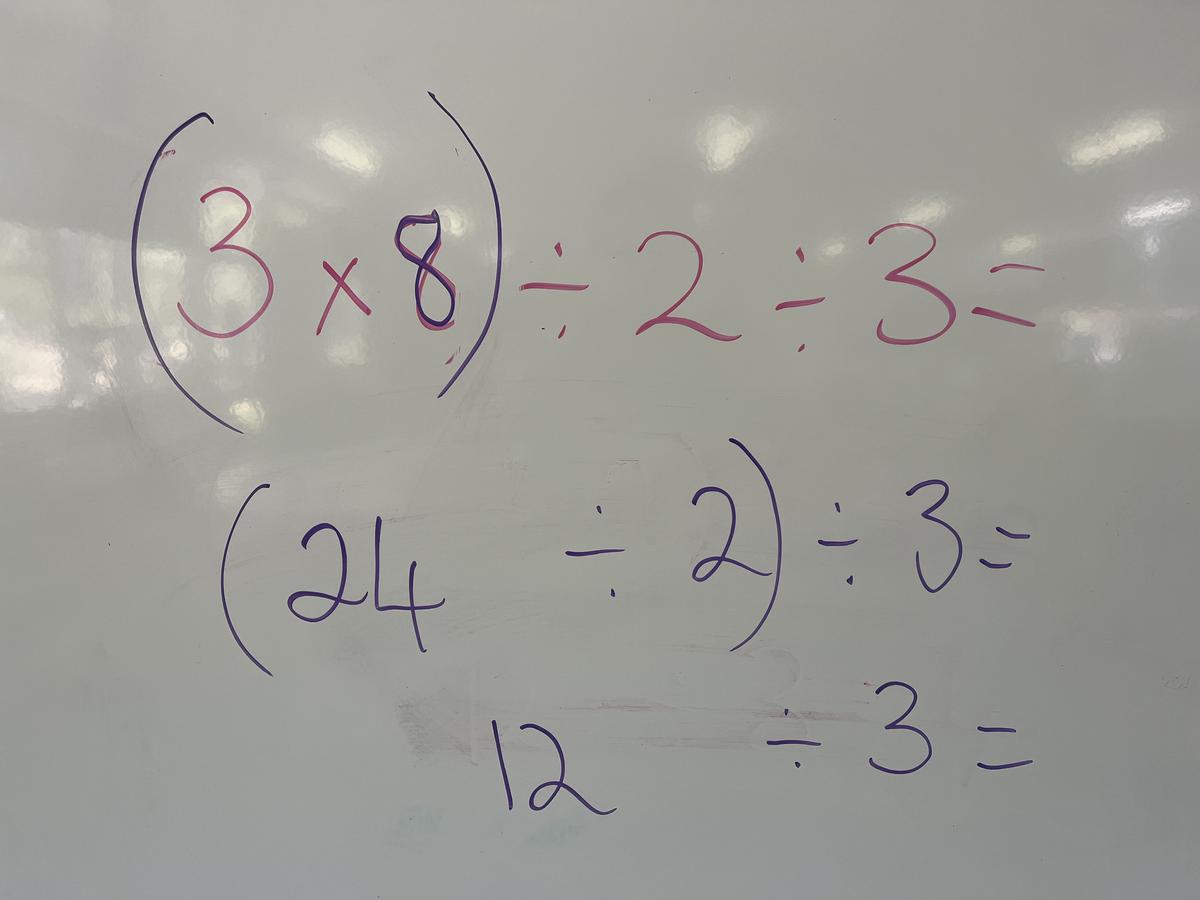 (3 × 8) ÷ 2 ÷ 3 =
(24 ÷ 2) ÷ 3 =
12 ÷ 3 =